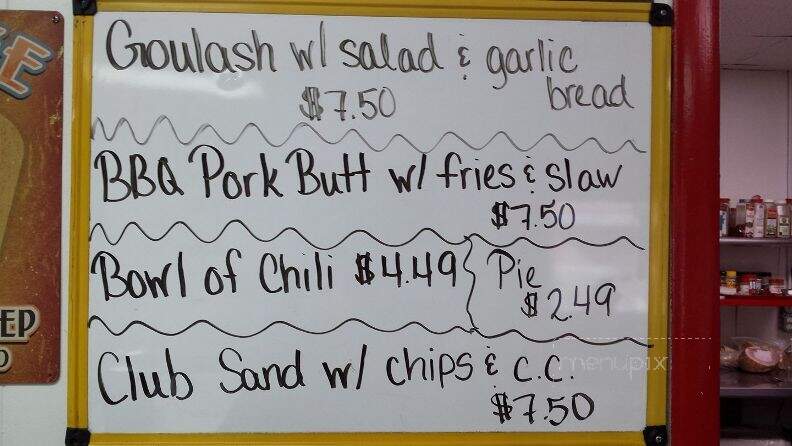 Goulash w/ salad & garlic
bread
$7.50
BBQ Pork Butt w/ fries & slaw
$7.50
Bowl of Chili $4.49
Pie
$2.49
Club Sand w/ chips & c.c.
$7.50
menupix
EP